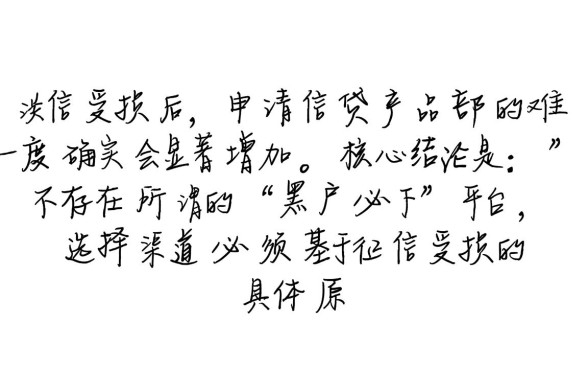 淡信受损后，申请信贷产品部的难
一度确实会显著增加。核心结论是：”
不存在所谓的“黑户必下”平台，
选择渠道必须基于征信受损的
具体原